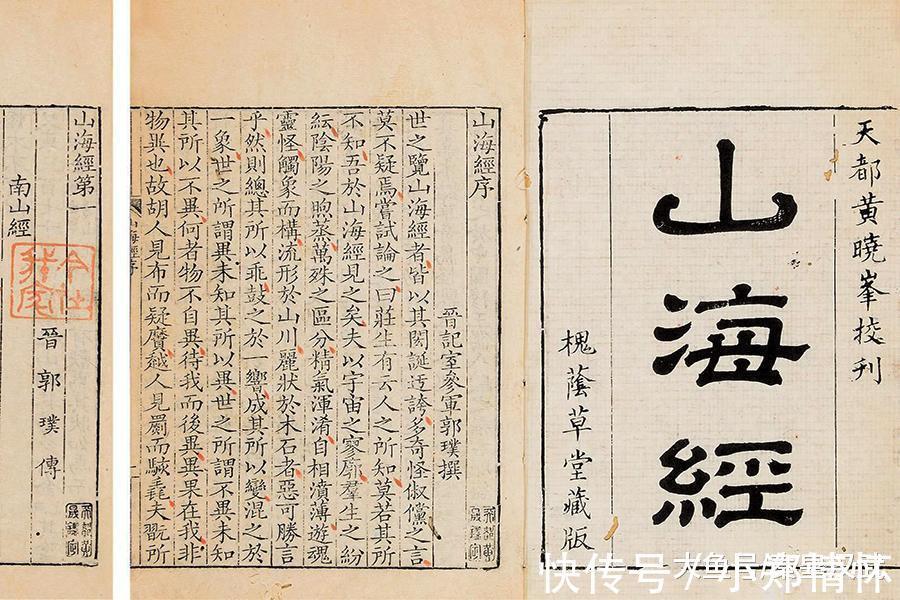 天都黃曉峯校刊
山海經
槐蔭草堂藏版
山海經序
晉記室參軍郭璞撰
世之覽山海經者皆以其閎誕迂誇多奇怪俶儻之言
莫不疑焉嘗試論之曰莊生有云人之所知莫若其所
不知吾於山海經見之矣夫以宇宙之寥廓羣生之紛
紜陰陽之煦蒸萬殊之區分精氣渾淆自相濆薄遊魂
靈怪觸象而構流形於山川麗狀於木石者惡可勝言
乎然則總其所以乖鼓之於一響成其所以變混之於
一象世之所謂異未知其所以異世之所謂不異未知
其所以不異何者物不自異待我而後異異果在我非
物異也故胡人見布而疑黂越人見罽而駭毳夫翫所
山海經序
山海經第一
南山經
晉郭璞傳
快传号/小郑情怀